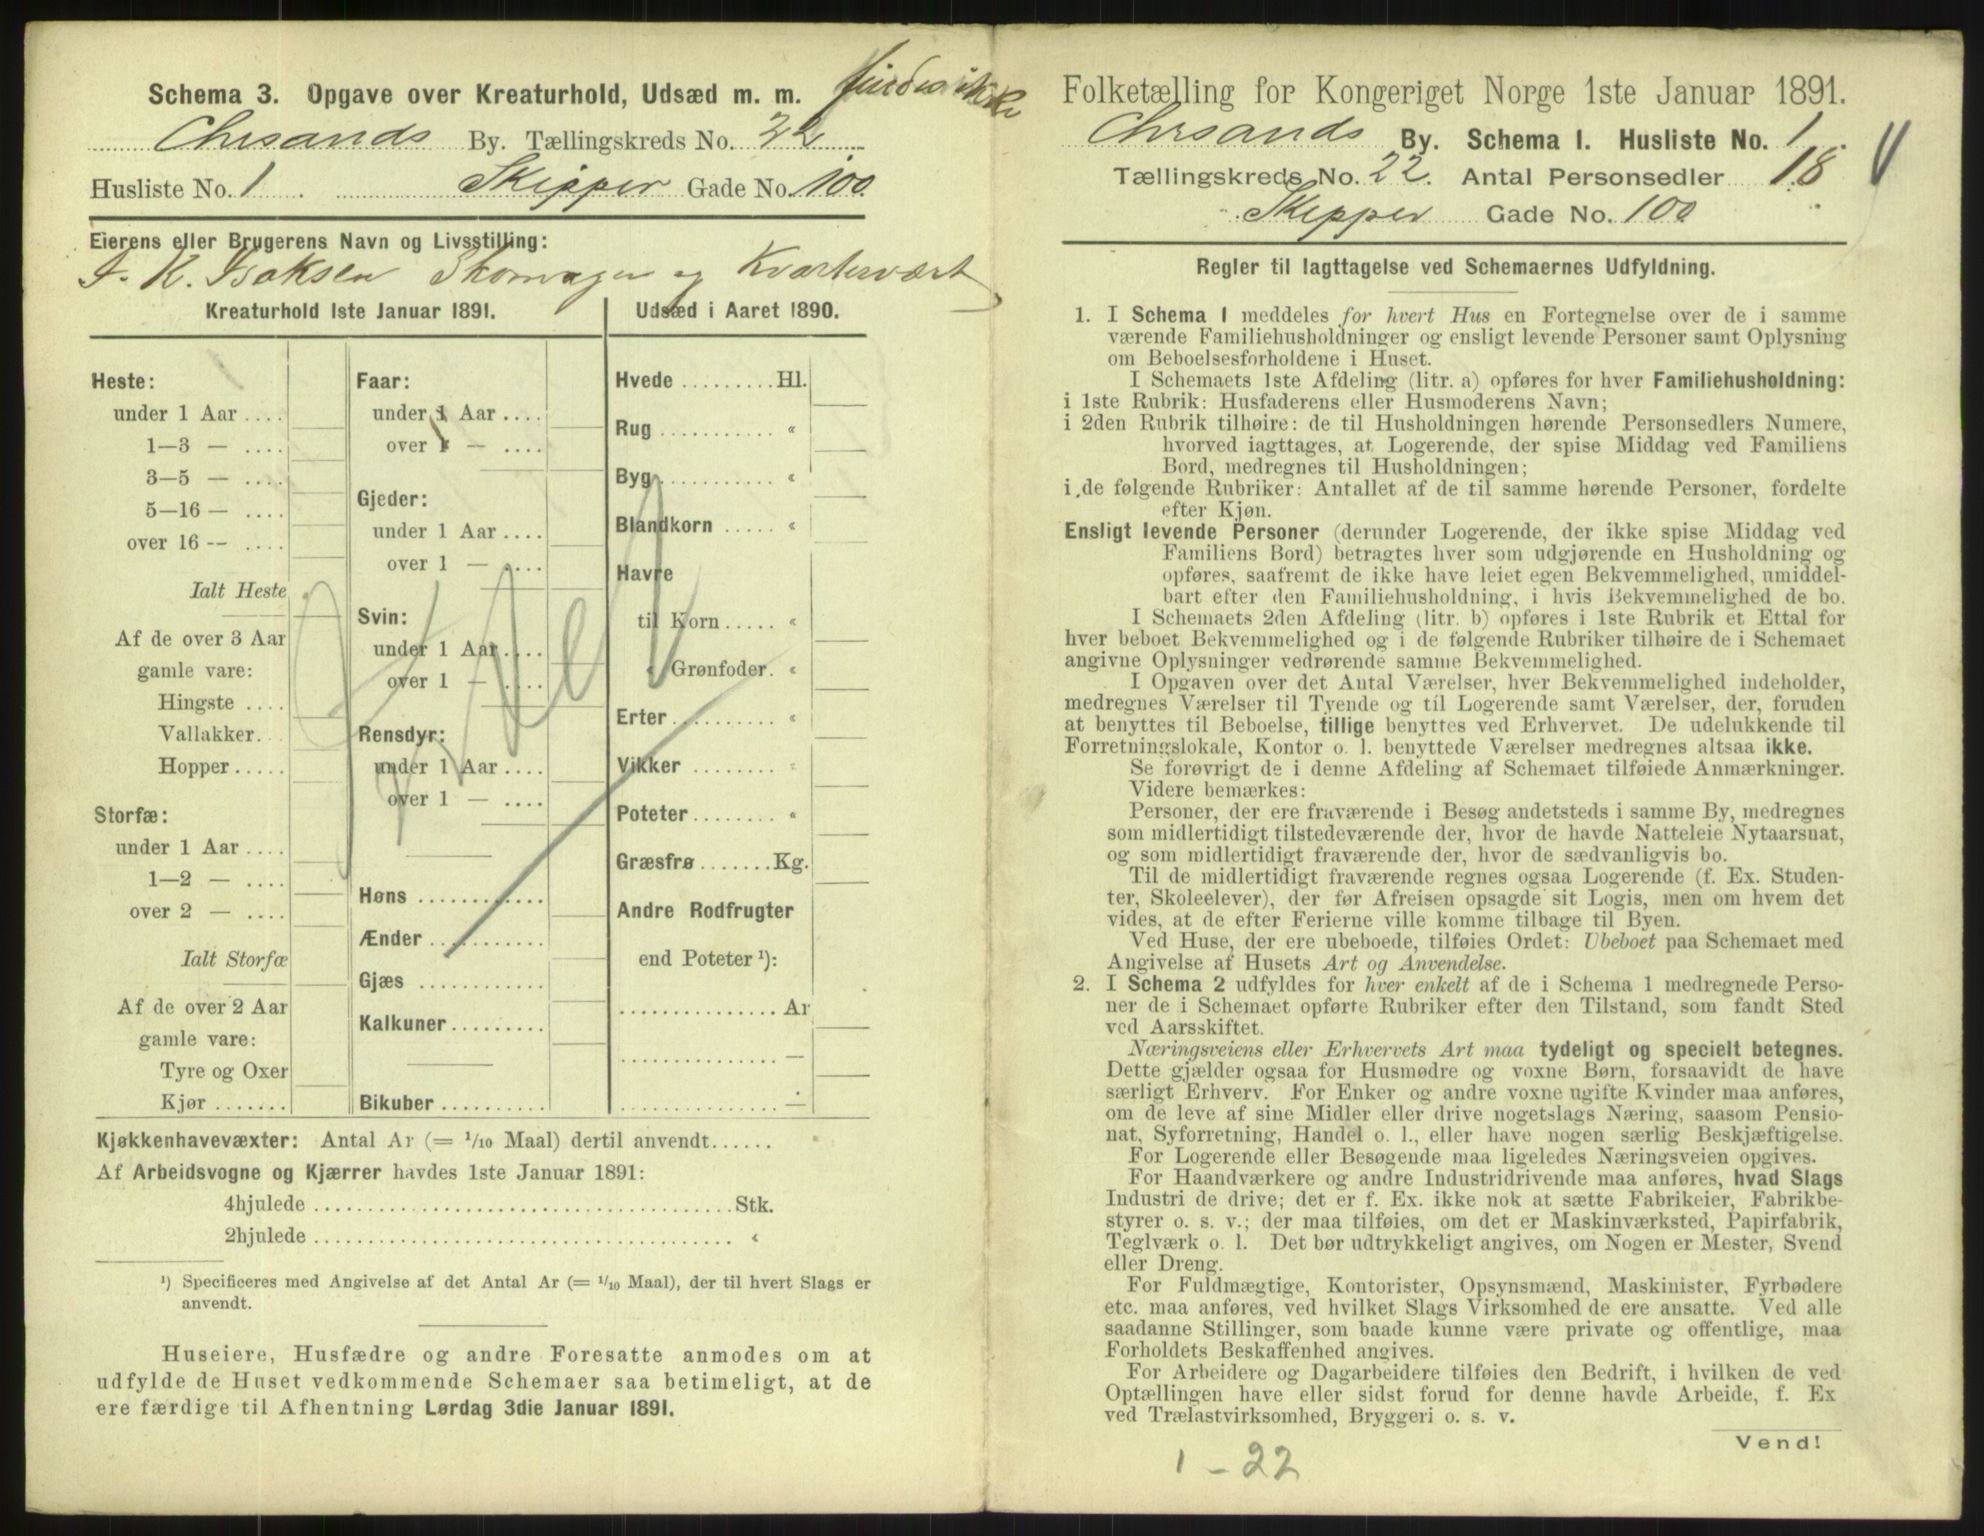 Schema 3. Opgave over Kreaturhold, Udsæd m. m. findes ikke
Chrsands By. Tællingskreds No. 22
Husliste No. 1 Skipper Gade No. 100.
Eierens eller Brugerens Navn og Livsstilling:
K. Isaksen Skomager og Kvartervært
Kreaturhold 1ste Januar 1891.
Heste:
under 1 Aar ....
1—3 — ....
3—5 — ....
5—16 — ....
over 16 -- ....
Ialt Heste
Af de over 3 Aar
gamle vare:
Hingste ....
Vallakker..
Hopper.....
Storfæ:
under 1 Aar ....
1—2 — ....
over 2 — ....
Ialt Storfæ
Af de over 2 Aar
gamle vare:
Tyre og Oxer
Kjør .......
Faar:
under 1 Aar ....
over 1 — ....
Gjeder:
under 1 Aar ....
over 1 — ....
Svin:
under 1 Aar ....
over 1 — ....
Rensdyr:
under 1 Aar ....
over 1 — ....
Høns ............
Ænder ...........
Gjæs ............
Kalkuner.........
Bikuber ..........
Udsæd i Aaret 1890.
Hvede .........Hl.
Rug ........... «
Byg........... «
Blandkorn ..... «
Havre
til Korn ..... «
« Grønfoder. «
Erter ......... «
Vikker ........ «
Poteter........ «
Græsfrø .......Kg.
Andre Rodfrugter
end Poteter ¹):
............... Ar
............... —
............... —
Kjøkkenhavevæxter: Antal Ar (= 1/10 Maal) dertil anvendt......
Af Arbeidsvogne og Kjærrer havdes 1ste Januar 1891:
4hjulede ......................................Stk.
2hjulede ...................................... «
¹) Specificeres med Angivelse af det Antal Ar (= 1/10 Maal), der til hvert Slags er
anvendt.
Huseiere, Husfædre og andre Foresatte anmodes om at
udfylde de Huset vedkommende Schemaer saa betimeligt, at de
ere færdige til Afhentning Lørdag 3die Januar 1891.
Folketælling for Kongeriget Norge 1ste Januar 1891.
Chrsands By. Schema I. Husliste No. 1.
Tællingskreds No. 22. Antal Personsedler 18
Skipper Gade No. 100
Regler til Iagttagelse ved Schemaernes Udfyldning.
1. I Schema I meddeles for hvert Hus en Fortegnelse over de i samme
værende Familiehusholdninger og ensligt levende Personer samt Oplysning
om Beboelsesforholdene i Huset.
I Schemaets 1ste Afdeling (litr. a) opføres for hver Familiehusholdning:
i 1ste Rubrik: Husfaderens eller Husmoderens Navn;
i 2den Rubrik tilhøire: de til Husholdningen hørende Personsedlers Numere,
hvorved iagttages, at Logerende, der spise Middag ved Familiens
Bord, medregnes til Husholdningen;
i de følgende Rubriker: Antallet af de til samme hørende Personer, fordelte
efter Kjøn.
Ensligt levende Personer (derunder Logerende, der ikke spise Middag ved
Familiens Bord) betragtes hver som udgjørende en Husholdning og
opføres, saafremt de ikke have leiet egen Bekvemmelighed, umiddel-
bart efter den Familiehusholdning, i hvis Bekvemmelighed de bo.
I Schemaets 2den Afdeling (litr. b) opføres i 1ste Rubrik et Ettal for
hver beboet Bekvemmelighed og i de følgende Rubriker tilhøire de i Schemaet
angivne Oplysninger vedrørende samme Bekvemmelighed.
I Opgaven over det Antal Værelser, hver Bekvemmelighed indeholder,
medregnes Værelser til Tyende og til Logerende samt Værelser, der, foruden
at benyttes til Beboelse, tillige benyttes ved Erhvervet. De udelukkende til
Forretningslokale, Kontor o. l. benyttede Værelser medregnes altsaa ikke.
Se forøvrigt de i denne Afdeling af Schemaet tilføiede Anmærkninger.
Videre bemærkes:
Personer, der ere fraværende i Besøg andetsteds i samme By, medregnes
som midlertidigt tilstedeværende der, hvor de havde Natteleie Nytaarsnat,
og som midlertidigt fraværende der, hvor de sædvanligvis bo.
Til de midlertidigt fraværende regnes ogsaa Logerende (f. Ex. Studen-
ter, Skoleelever), der før Afreisen opsagde sit Logis, men om hvem det
vides, at de efter Ferierne ville komme tilbage til Byen.
Ved Huse, der ere ubeboede, tilføies Ordet: Ubeboet paa Schemaet med
Angivelse af Husets Art og Anvendelse.
2. I Schema 2 udfyldes for hver enkelt af de i Schema 1 medregnede Perso-
ner de i Schemaet opførte Rubriker efter den Tilstand, som fandt Sted
ved Aarsskiftet.
Næringsveiens eller Erhvervets Art maa tydeligt og specielt betegnes.
Dette gjælder ogsaa for Husmødre og voxne Børn, forsaavidt de have
særligt Erhverv. For Enker og andre voxne ugifte Kvinder maa anføres,
om de leve af sine Midler eller drive nogetslags Næring, saasom Pensio-
nat, Syforretning, Handel o. l., eller have nogen særlig Beskjæftigelse.
For Logerende eller Besøgende maa ligeledes Næringsveien opgives.
For Haandværkere og andre Industridrivende maa anføres, hvad Slags
Industri de drive; det er f. Ex. ikke nok at sætte Fabrikeier, Fabrikbe-
styrer o. s. v.; der maa tilføies, om det er Maskinværksted, Papirfabrik,
Teglværk o. l. Det bør udtrykkeligt angives, om Nogen er Mester, Svend
eller Dreng.
For Fuldmægtige, Kontorister, Opsynsmænd, Maskinister, Fyrbødere
etc. maa anføres, ved hvilket Slags Virksomhed de ere ansatte. Ved alle
saadanne Stillinger, som baade kunne være private og offentlige, maa
Forholdets Beskaffenhed angives.
For Arbeidere og Dagarbeidere tilføies den Bedrift, i hvilken de ved
Optællingen have eller sidst forud for denne havde Arbeide, f. Ex
ved Trælastvirksomhed, Bryggeri o. s. v.
Vend!
1 - 22